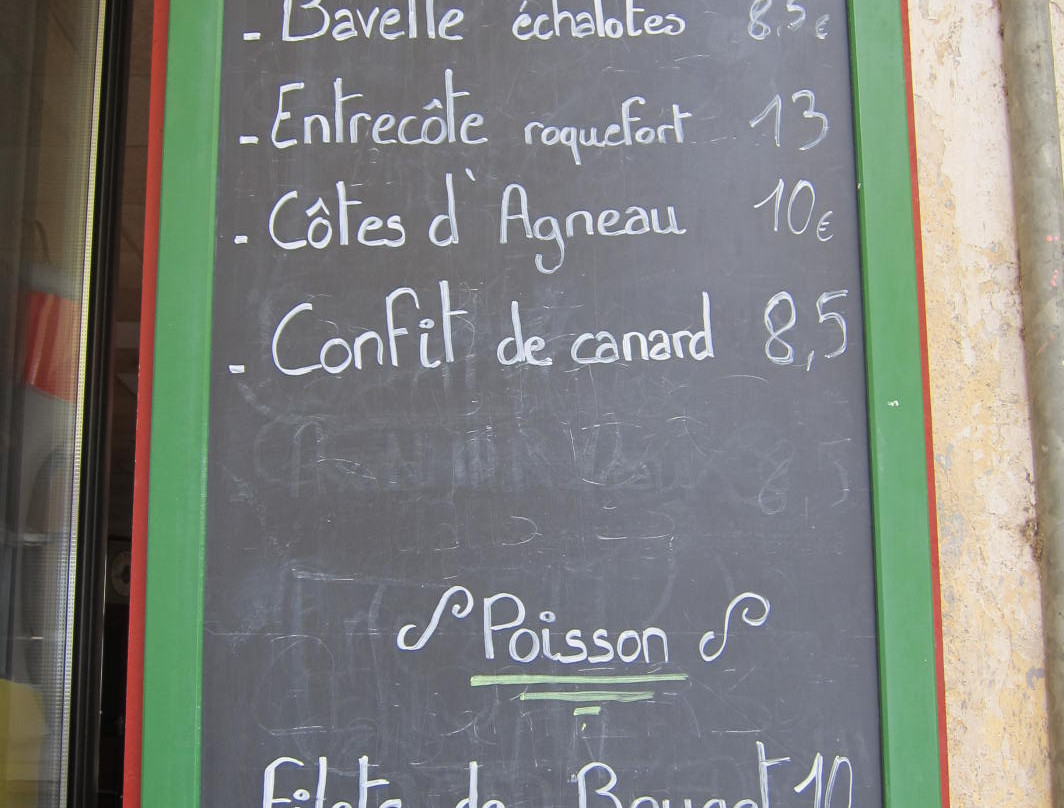 - Bavette échalotes 8.5€
- Entrecôte roquefort 13
- Côtes d'Agneau 10€
- Confit de canard 8,5
8,5
Poisson
Filets de Rouget 10